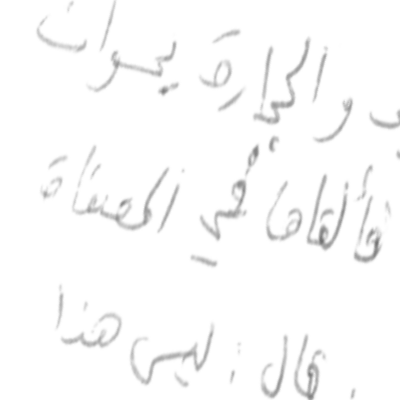 والحجارة يحواث
فألقاها في المصفاة
قال : ليس هذا